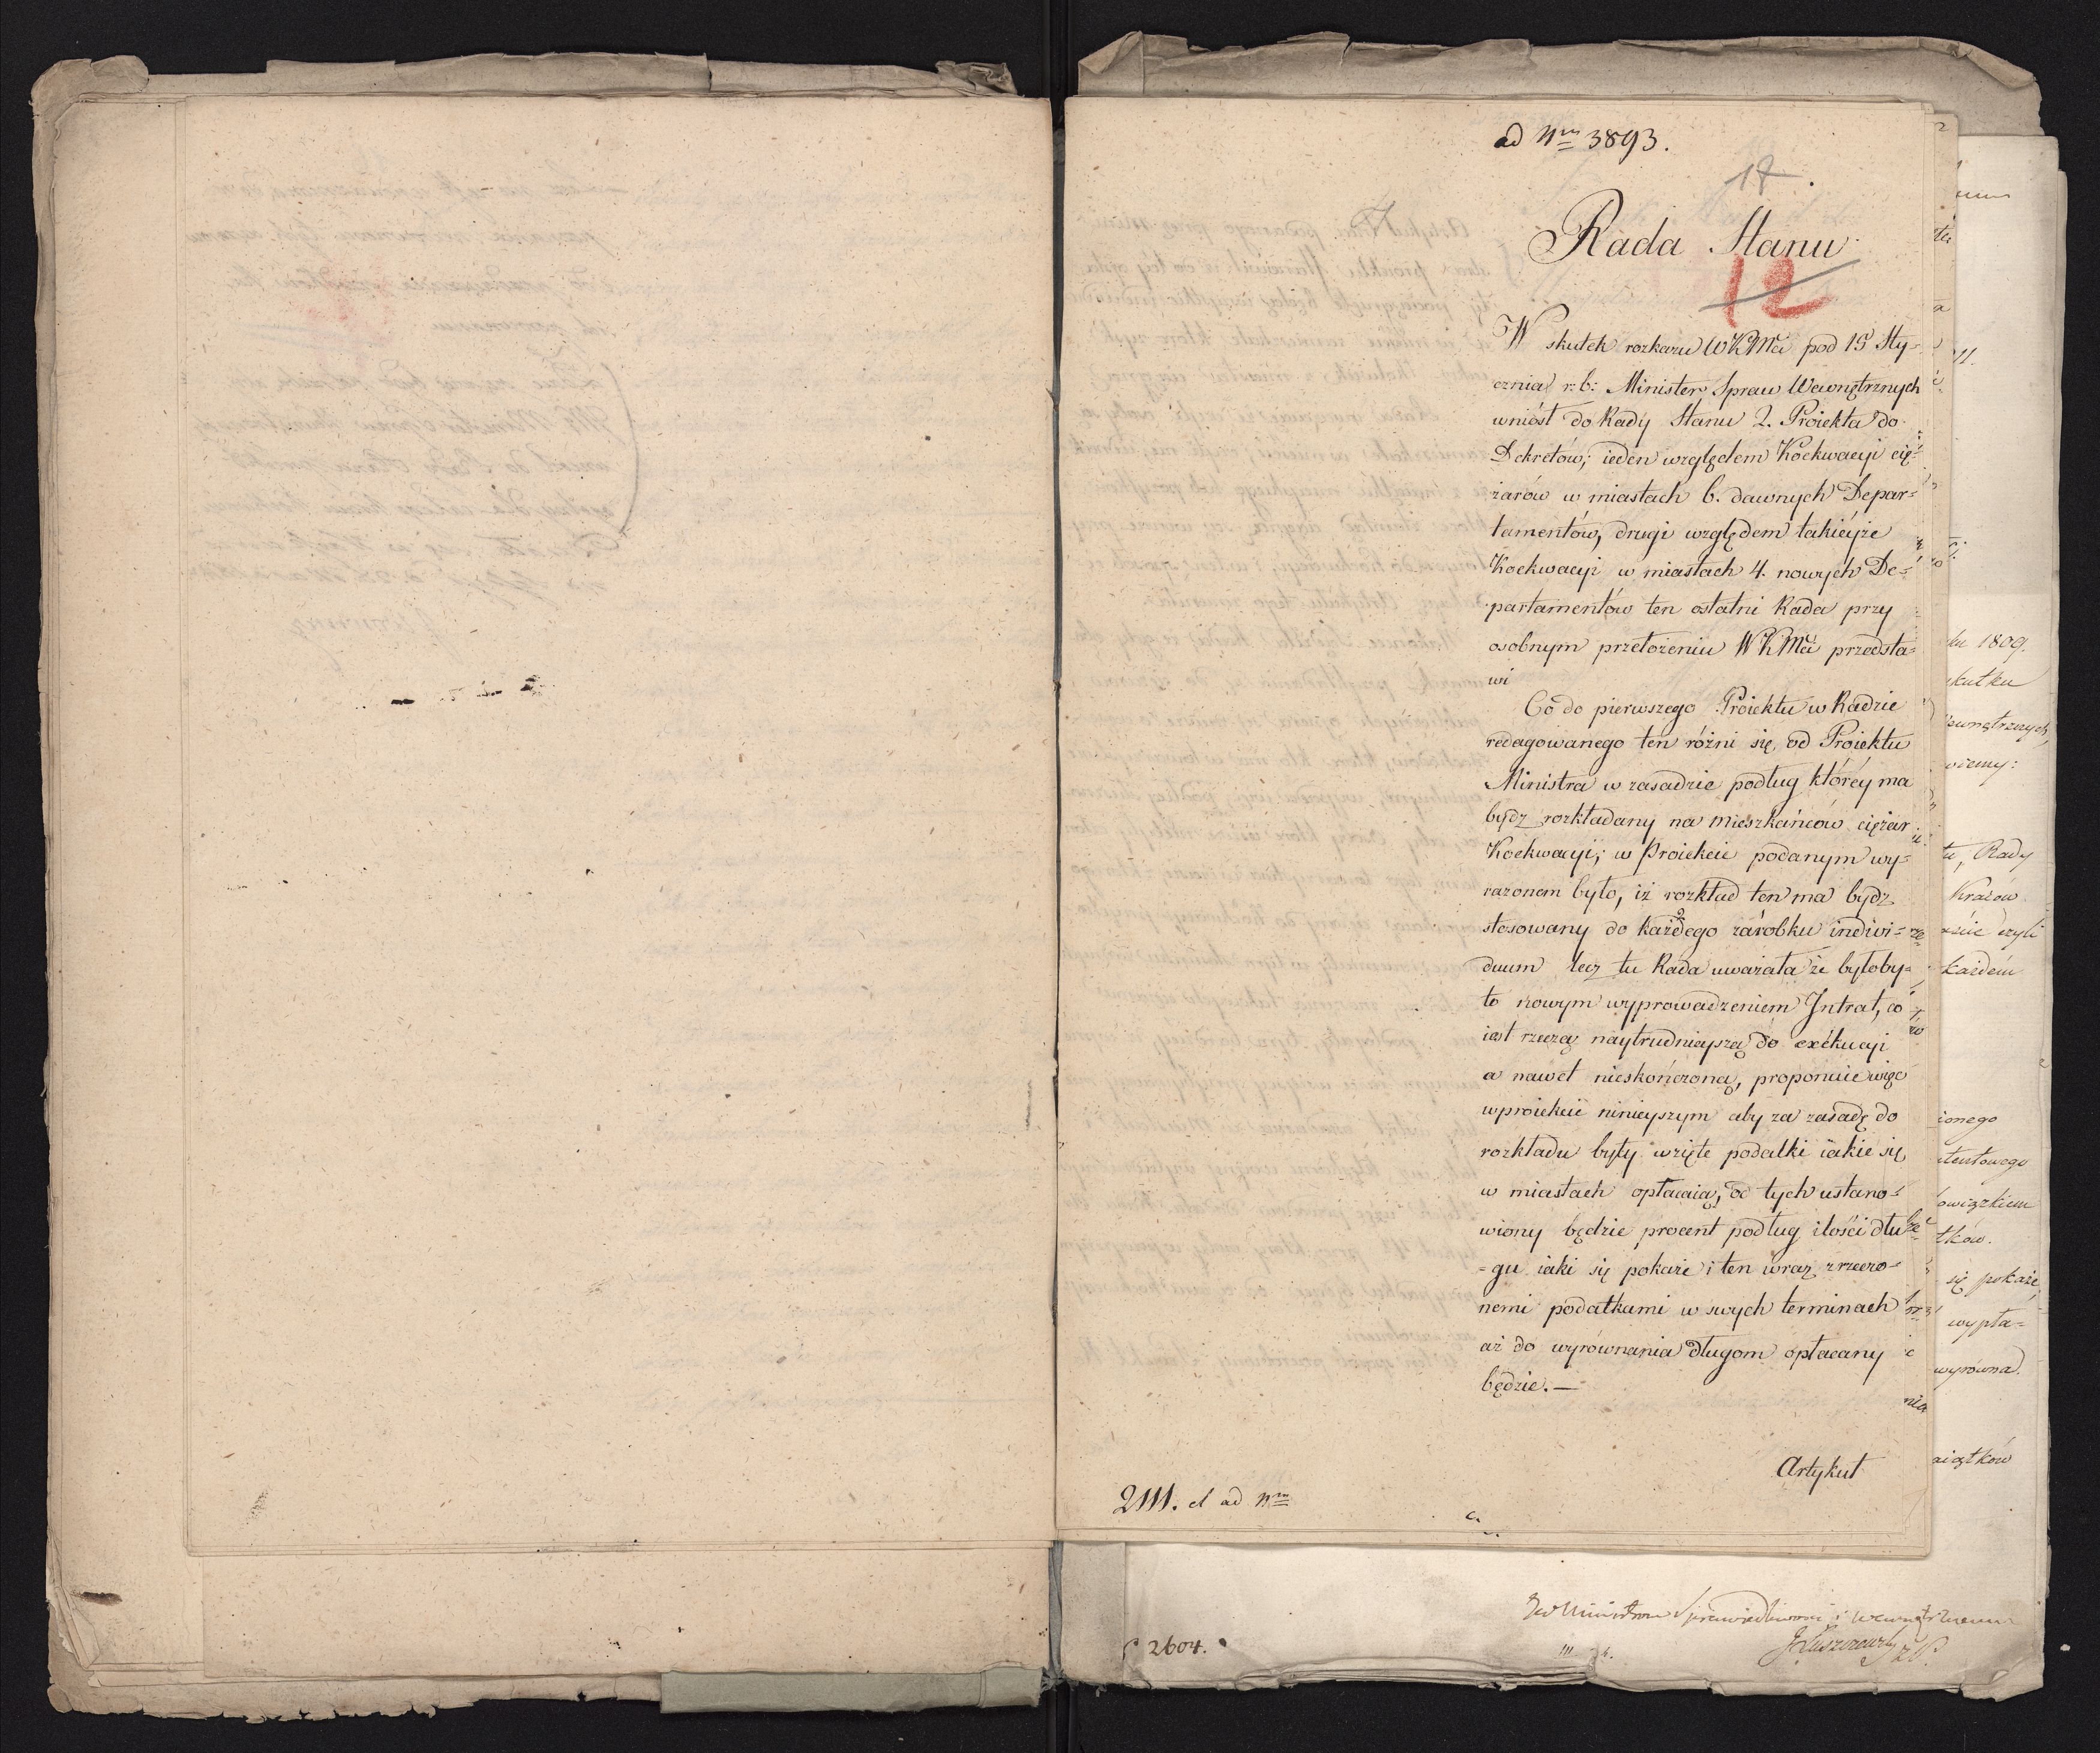 ad Nrm 3893.
17.
Rada Stanu
12
W skutek rozkazu WKMci pod 15 Sty=
cznia r: b: Minister Spraw Wewnętrznych
wniósł do Rady Stanu 2. Proiekta do
Dekretów; ieden względem Koekwacyi cię=
żarów w miastach b. dawnych Depar=
tamentów, drugi względem takieyże
Koekwacyi w miastach 4. nowych De=
partamentów ten ostatni Rada przy
osobnym przełożeniu WKMci przedsta=
wi
Co do pierwszego Proiektu w Radzie
redagowanego ten różni się od Proiektu
Ministra w zasadzie podług któréy ma
bydz rozkładany na mieszkańców ciężar
Koekwacyi; w Proiekcie podanym wy=
razonem było, iż rozkład ten ma bydz
stosowany do każdego zárobku indiwi=
duum lecz tu Rada uważała że byłoby=
to nowym wyprowadzeniem Intrat, co
iest rzeczą naytrudnieyszą do exekucyi
a nawet nieskończoną, proponuie więc
w proiekcie ninieyszym aby za zasadę do
rozkładu były wzięte podatki iakie się
w miastach opłacaią, od tych ustano=
wiony będzie procent podług ilości dłu
=gu iaki się pokaże i ten wraz z rzeczo=
nemi podatkami w swych terminach
aż do wyrównania długom opłacany
będzie.—
Artykuł
2111. et ad Nrm
ku 1809.
skutku
ewnętrznych,
wiemy:
tu, Rady
Kraiow
każdem
ionego
tentowego
owiązkiem
tków.
się pokaże,
wypła=
wyrówna.
aiątków
2604.